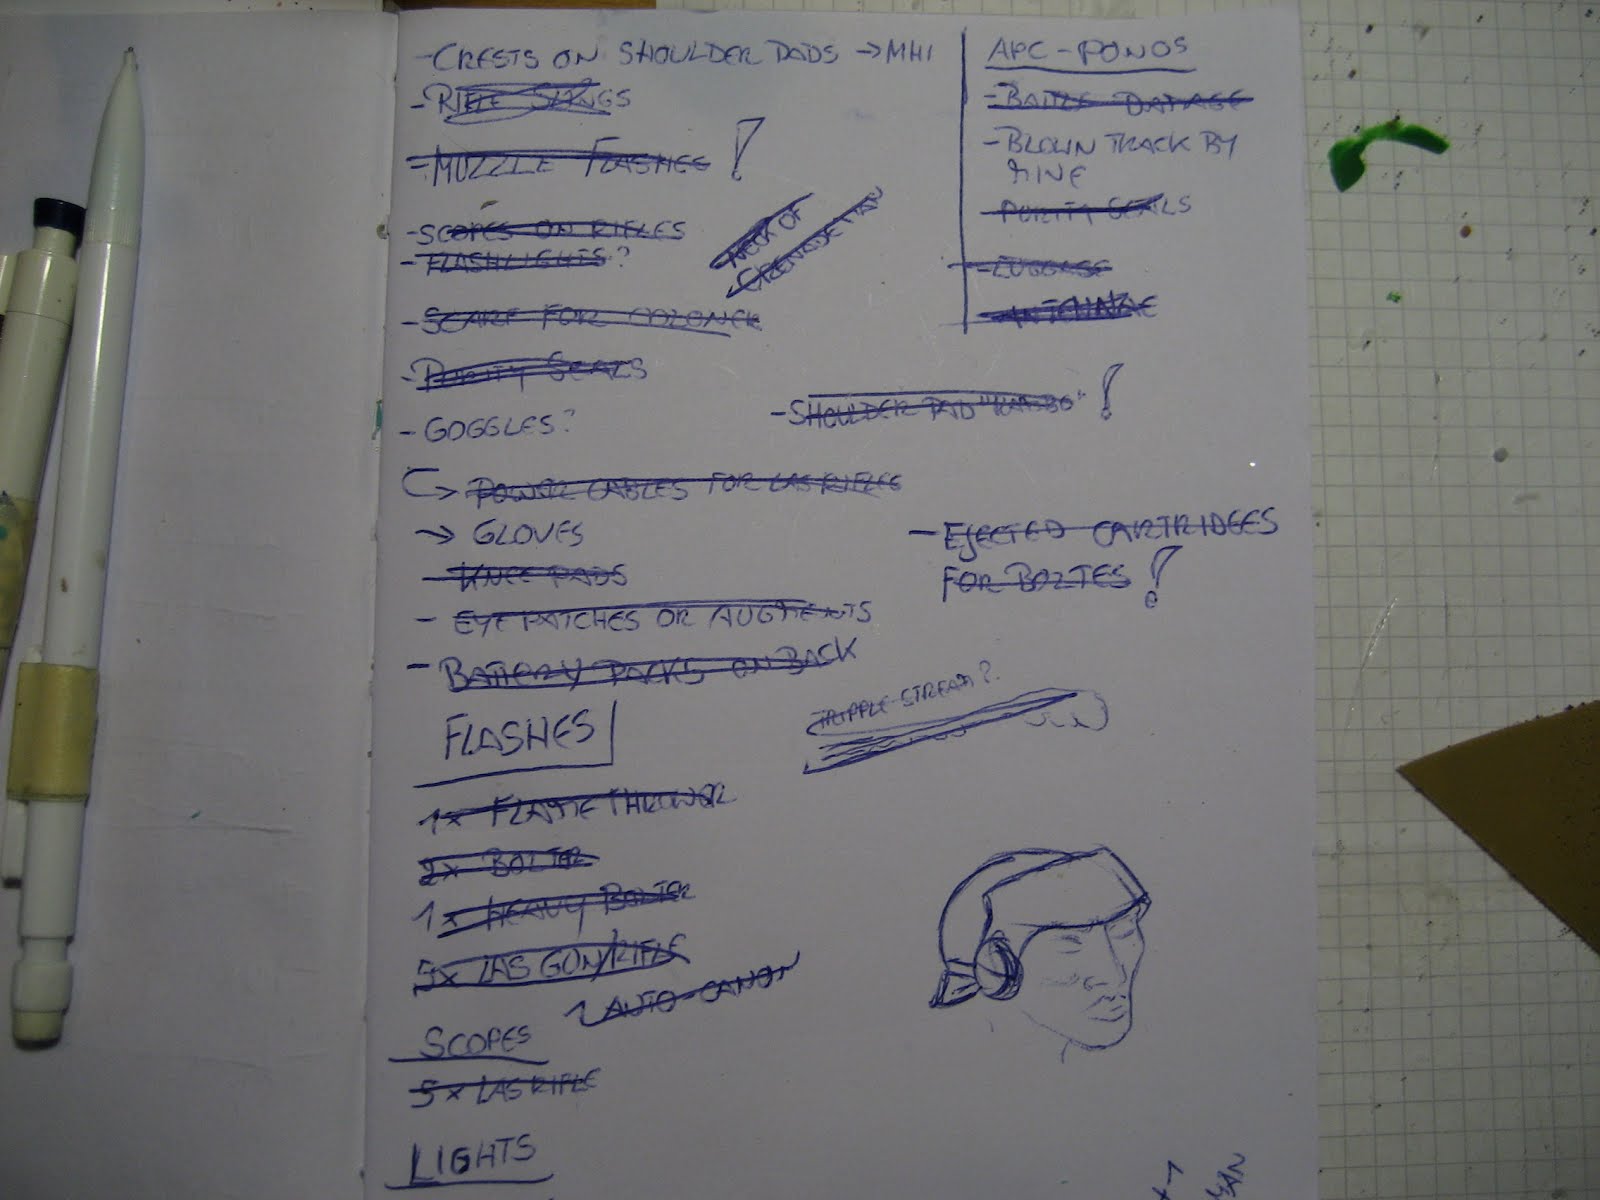 - CRESTS ON SHOULDER PADS → MHI
- RIFLE SLINGS
- MUZZLE FLASHES !
- SCOPES ON RIFLES
- FLASHLIGHTS?
NECK OF
GRENADE
- SCARF FOR
- PURITY SEALS
- GOGGLES?
- SHOULDER PAD !
→ POWER CABLES FOR LAS RIFLES
→ GLOVES
- KNEE PADS
- EYE PATCHES OR AUGMENTS
- BATTERY PACKS ON BACK
- EJECTED CARTRIDGES
FOR BOLTES !
TRIPPLE-STREAM?
FLASHES
1x FLAMETHROWER
2x BOLTER
1x HEAVY BOLTER
5x LAS GUN/RIFLE
1 AUTO-CANON
SCOPES
5x LAS RIFLE
LIGHTS
APC-
- BATTLE DAMAGE
- BLOWN TRACK BY
MINE
- PURITY SEALS
- LUGGAGE
- ANTENNAE